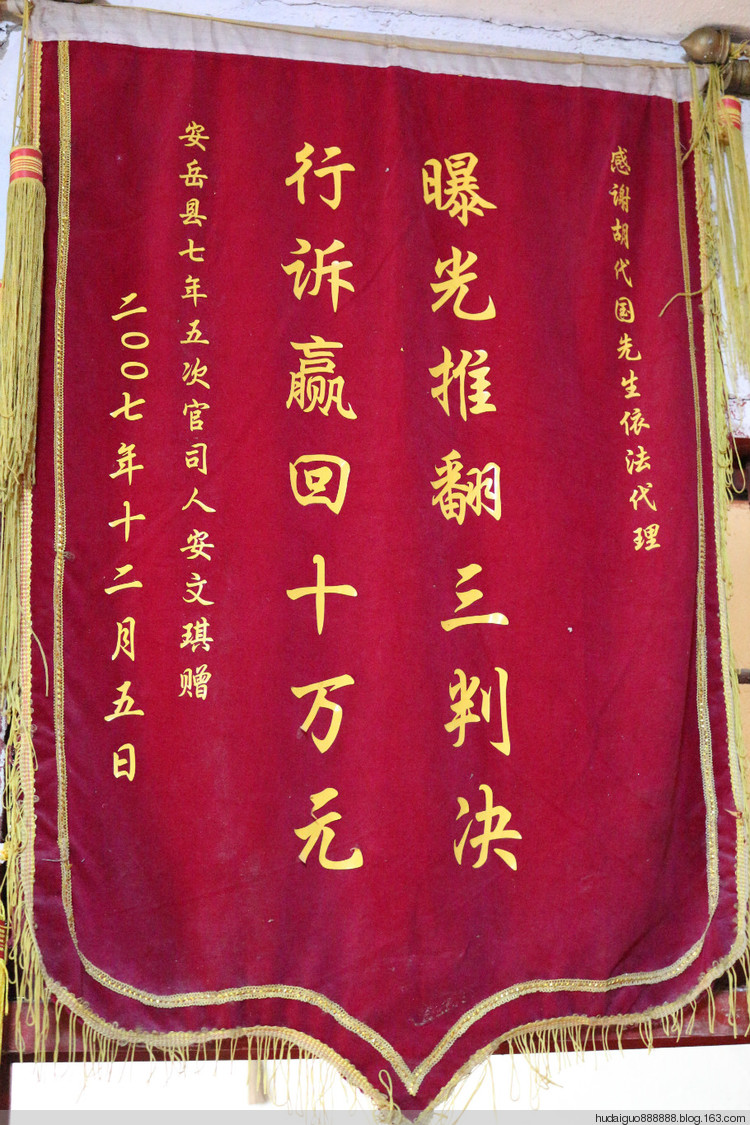 感谢胡代国先生依法代理
曝光推翻三判决
行诉赢回十万元
安岳县七年五次官司人安文琪赠
二〇〇七年十二月五日
hudaiguo888888.blog.163.com